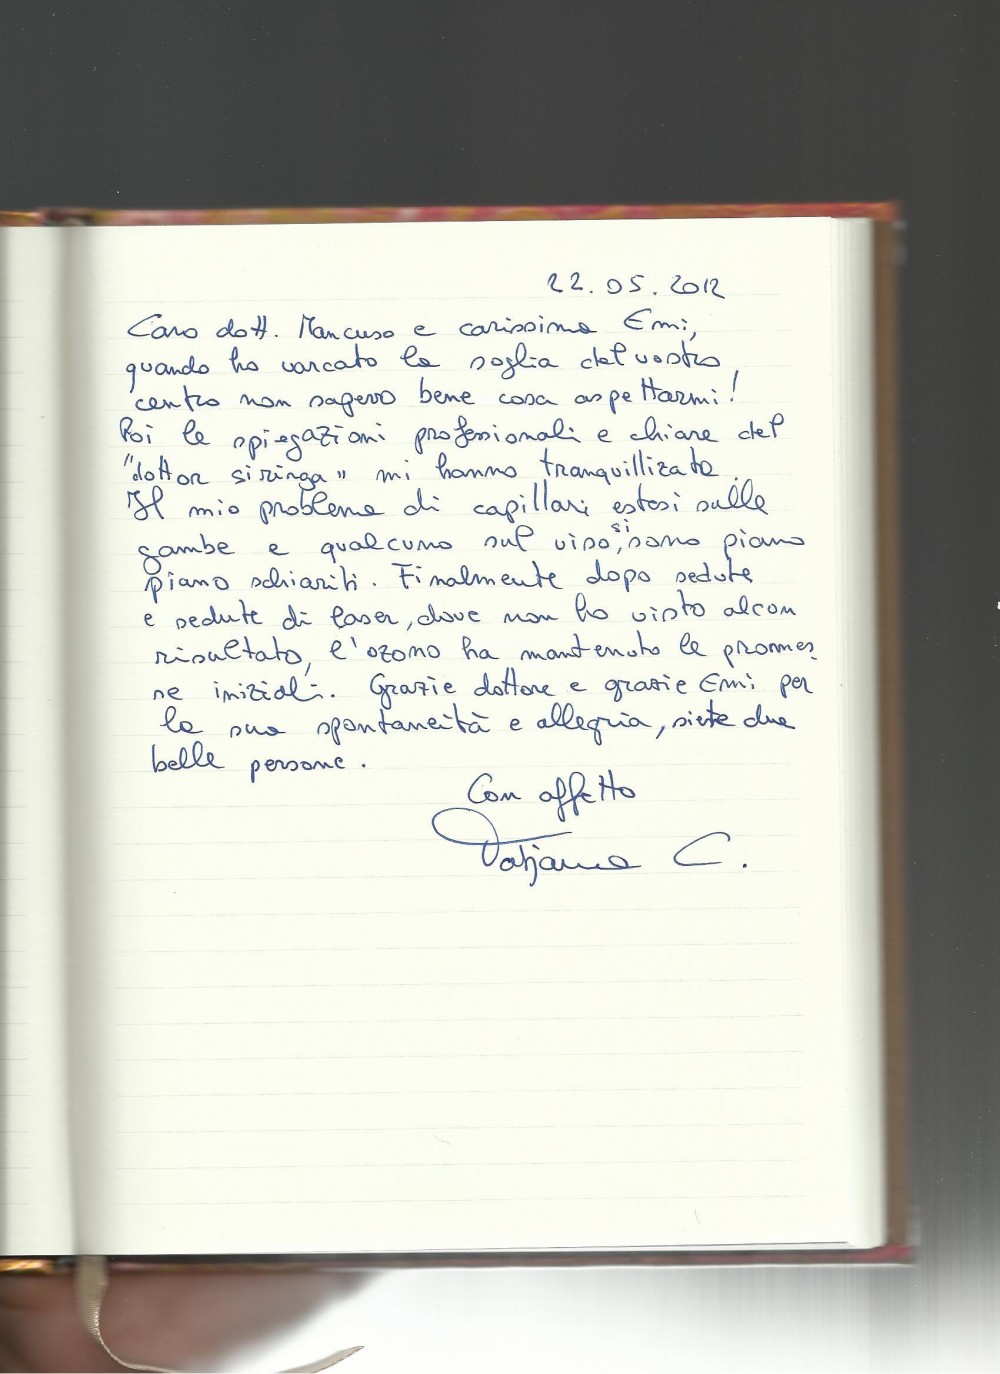 22.05.2012
Caro dott. Mancuso e carissima Emi,
quando ho varcato la soglia del vostro
centro non sapevo bene cosa aspettarmi!
Poi le spiegazioni professionali e chiare del
"dottor siringa" mi hanno tranquillizzata.
Il mio problema di capillari estesi sulle
gambe e qualcuno sul viso, si sono piano
piano schiariti. Finalmente dopo sedute
e sedute di laser, dove non ho visto alcun
risultato, l'ozono ha mantenuto le promes
se iniziali. Grazie dottore e grazie Emi per
la sua spontaneità e allegria, siete due
belle persone.
Con affetto
Tatjana C.